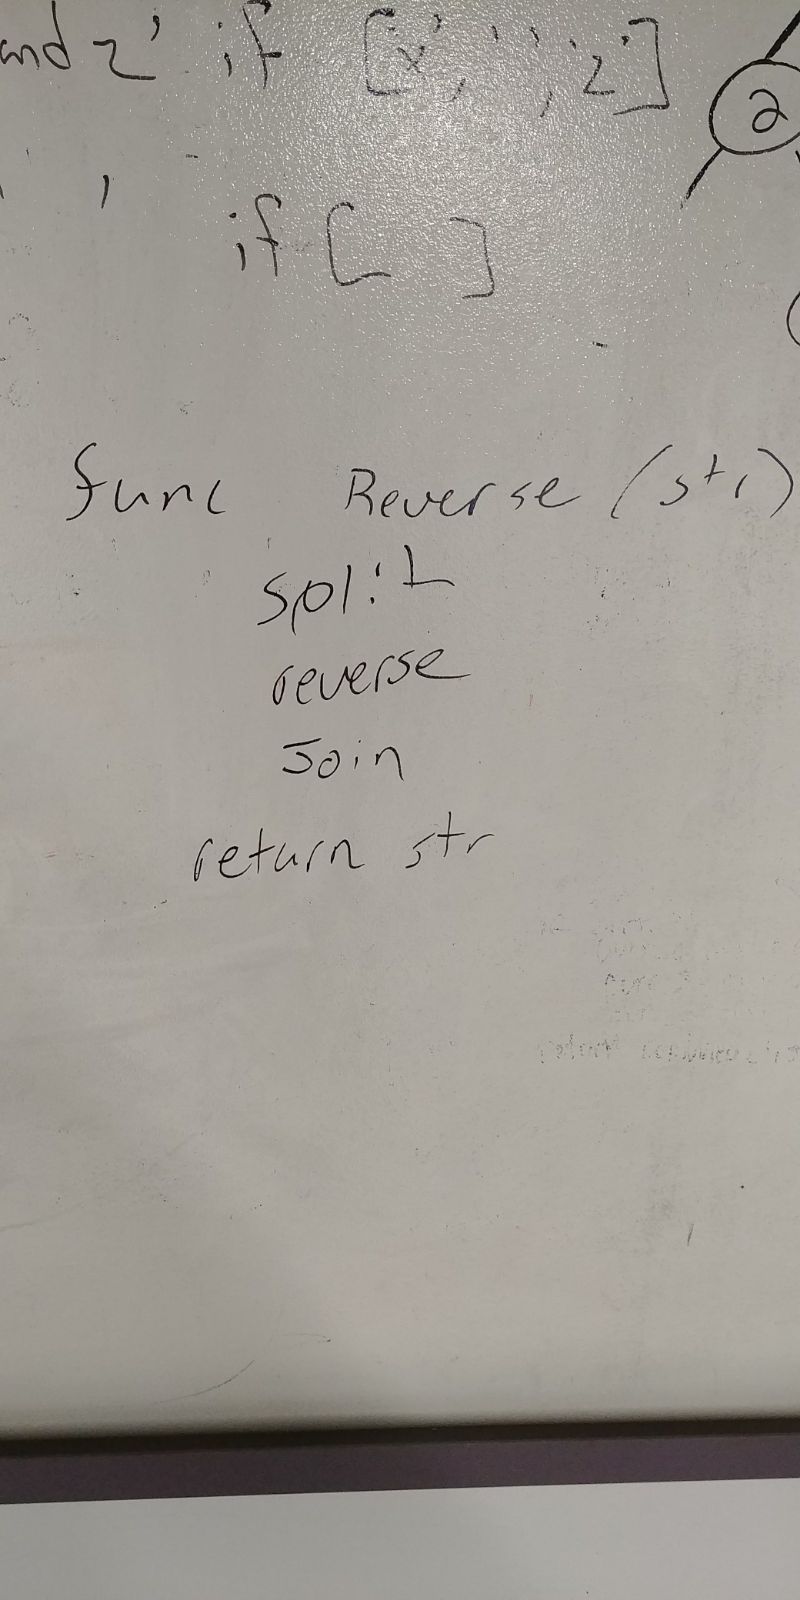 and z' if ['x', '', 'z']
'' if [ ]
2
func Reverse (str)
split
reverse
Join
return str